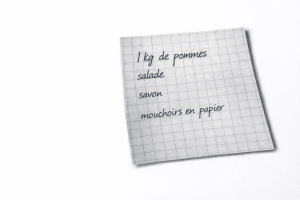 1 kg de pommes
salade
savon
mouchoirs en papier